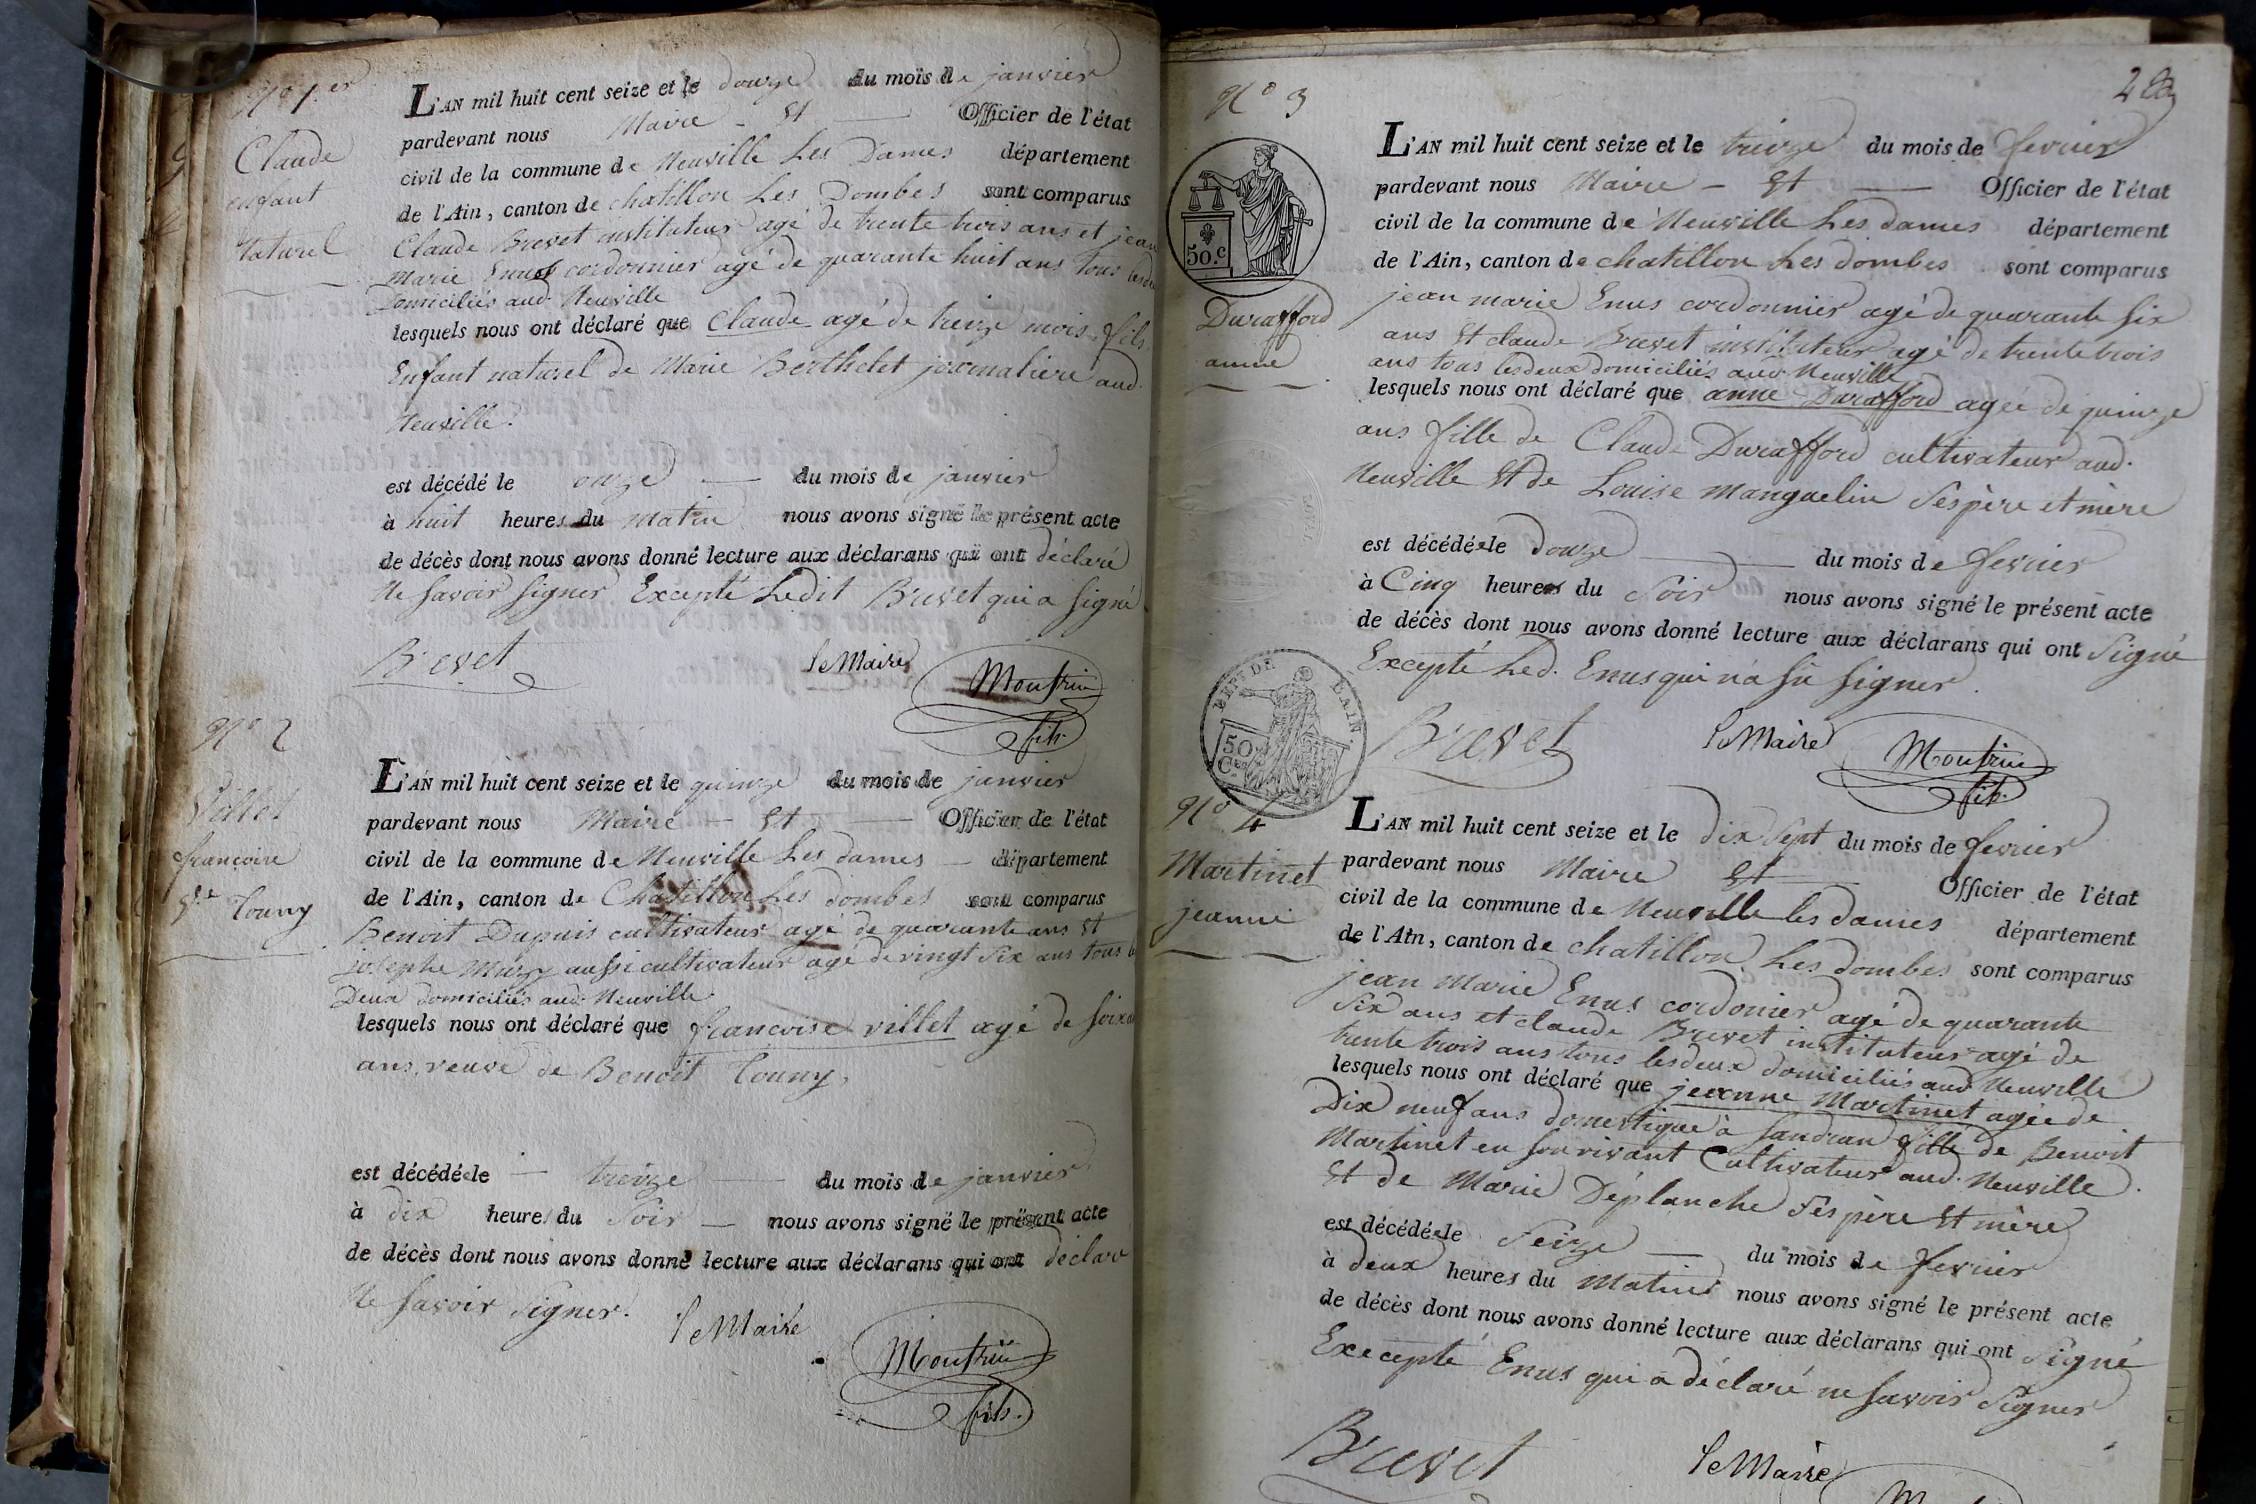 N.º 1.er
Claude
enfant
naturel
L'AN mil huit cent seize et le douze du mois de janvier
pardevant nous Maire - Et Officier de l'état
civil de la commune de Neuville Les Dames département
de l'Ain, canton de chatillon Les Dombes sont comparus
Claude Brevet instituteur agé de trente trois ans et jean
Marie Enus cordonnier agé de quarante huit ans tous
Domiciliés aud. Neuville
lesquels nous ont déclaré que Claude agé de treize mois fils
Enfant naturel de Marie Berthelet journaliere aud.
Neuville.
est décédé le onze du mois de janvier
à huit heures du Matin nous avons signé le présent acte
de décès dont nous avons donné lecture aux déclarans qui ont déclaré
Ne savoir signer Excepté Ledit Brevet qui a signé
Brevet le Maire Moufrin
fils
N.º 2
Villet
francoise
Ve. Touny
L'AN mil huit cent seize et le quinze du mois de janvier
pardevant nous Maire - Et Officier de l'état
civil de la commune de Neuville Les dames département
de l'Ain, canton de Chatillon Les dombes sont comparus
Benoit Dupuis cultivateur agé de quarante ans Et
josephe aussi cultivateur agé de vingt six ans tous
Deux domiciliés aud. Neuville
lesquels nous ont déclaré que francoise villet agé de
ans, veuve de Benoit Touny,
est décédée le treize du mois de janvier
à dix heures du Soir nous avons signé le présent acte
de décès dont nous avons donné lecture aux déclarans qui ont déclaré
Ne savoir signer. le Maire
Moufrin
fils.
28
N.º 3
50.c
Durafford
anne
L'AN mil huit cent seize et le treize du mois de fevrier
pardevant nous Maire - Et Officier de l'état
civil de la commune de Neuville Les dames département
de l'Ain, canton de chatillon Les dombes sont comparus
jean marie Enus cordonnier agé de quarante six
ans Et claude Brevet instituteur agé de trente trois
ans tous les deux domiciliés aud. Neuville
lesquels nous ont déclaré que anne Durafford agée de quinze
ans fille de Claude Durafford cultivateur aud.
Neuville Et de Louise Manguelin Ses père et mère
est décédée le douze du mois de fevrier
à Cinq heures du Soir nous avons signé le présent acte
de décès dont nous avons donné lecture aux déclarans qui ont Signé
Excepté Led. Enus qui n'a su signer.
DEPT DE L'AIN.
50
Ces
Brevet le Maire Moufrin
fils.
N.º 4
Martinet
jeanne
L'AN mil huit cent seize et le dix sept du mois de fevrier
pardevant nous Maire Et Officier de l'état
civil de la commune de Neuville les dames département
de l'Ain, canton de chatillon Les dombes sont comparus
jean Marie Enus cordonier agé de quarante
Six ans et claude Brevet instituteur agé de
trente trois ans tous les deux domiciliés aud. Neuville
lesquels nous ont déclaré que jeanne Martinet agée de
Dix neuf ans domestique à Sandran fille de Benoit
Martinet en son vivant Cultivateur aud. Neuville.
Et de Marie Déplanche Ses père Et mère
est décédée le Seize du mois de fevrier
à deux heures du Matin nous avons signé le présent acte
de décès dont nous avons donné lecture aux déclarans qui ont Signé
Excepté Enus qui a déclaré ne savoir Signer
Brevet le Maire